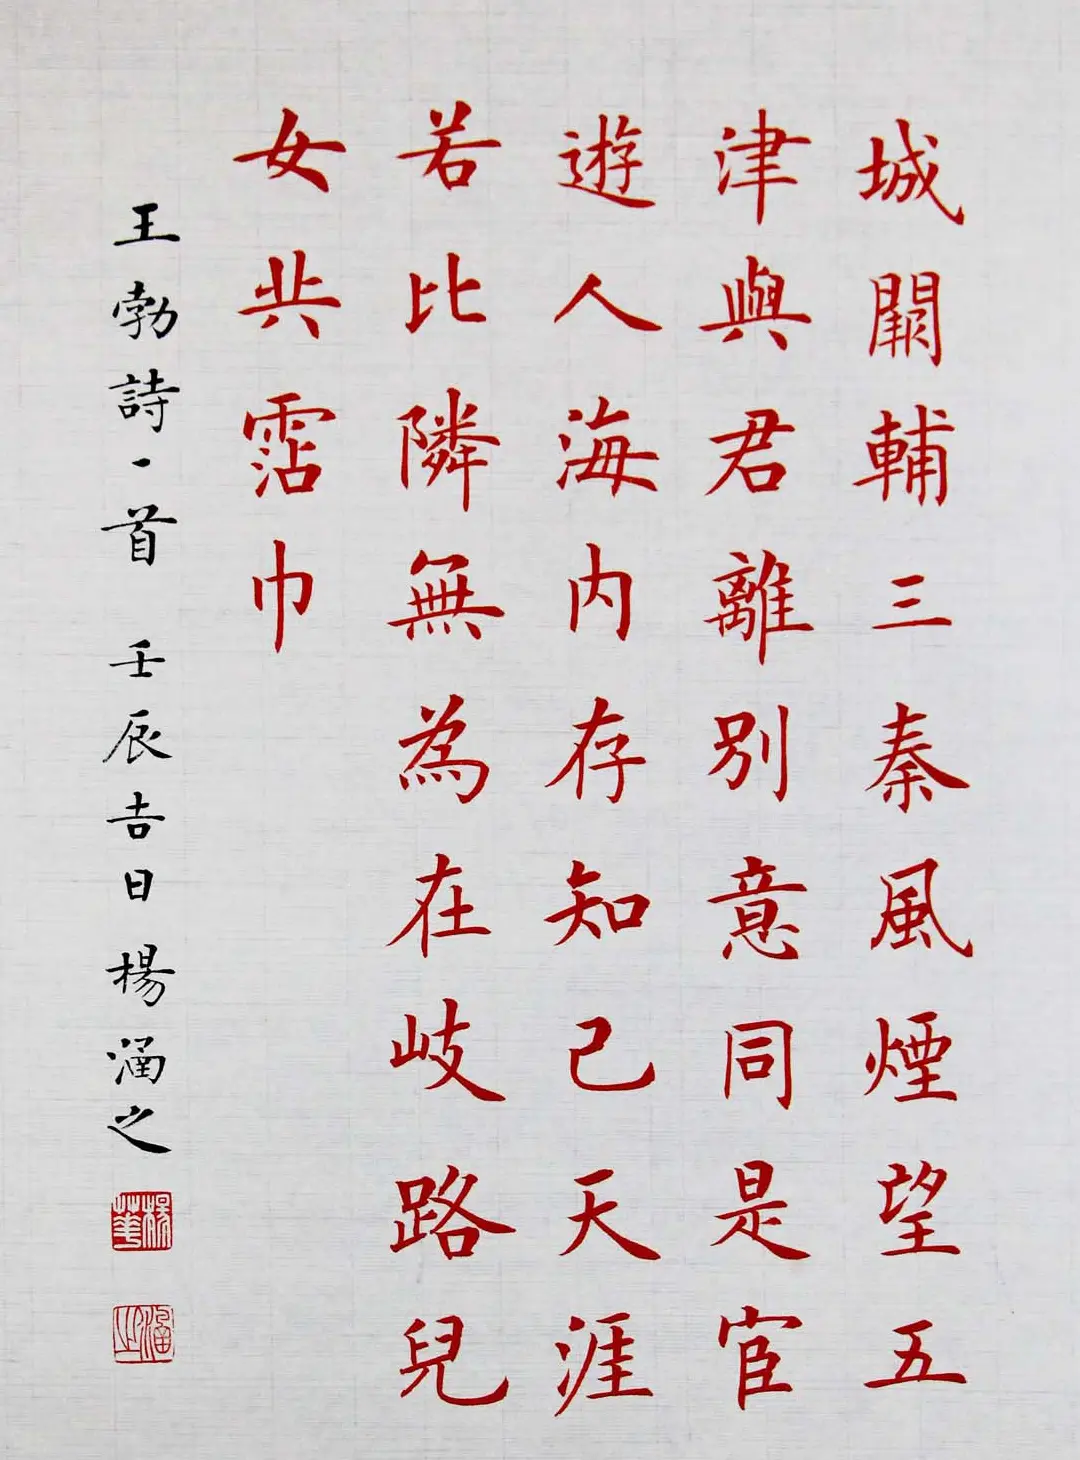 城闕輔三秦風煙望五
津與君離別意同是宦
遊人海内存知己天涯
若比隣無為在岐路兒
女共霑巾
王勃詩一首 壬辰吉日楊涵之
楊華
涵之